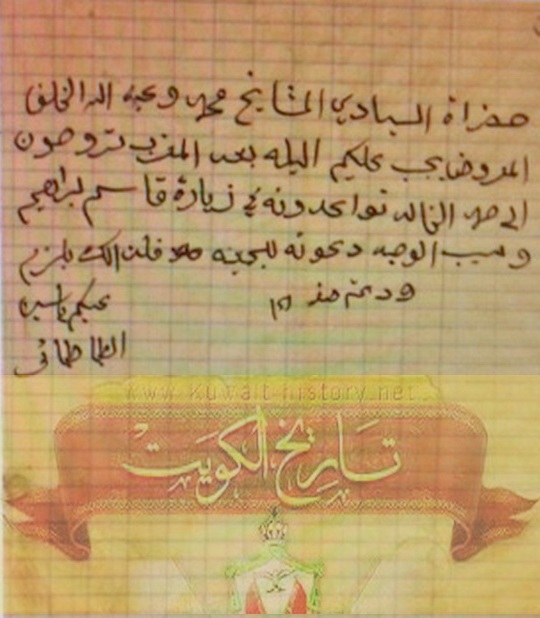 حضراة السيادي المشايخ محمد وعبد الله الخلف
المعروض يجب عليكم الليله بعد المغرب تروحون
الى حمد الخالد تواعدونه في زيارة قاسم ابراهيم
وسبب الوجبه دعوته للجنه
ودمتم
عليكم
الطباطبائي
www.kuwait-history.net
تاريخ الكويت